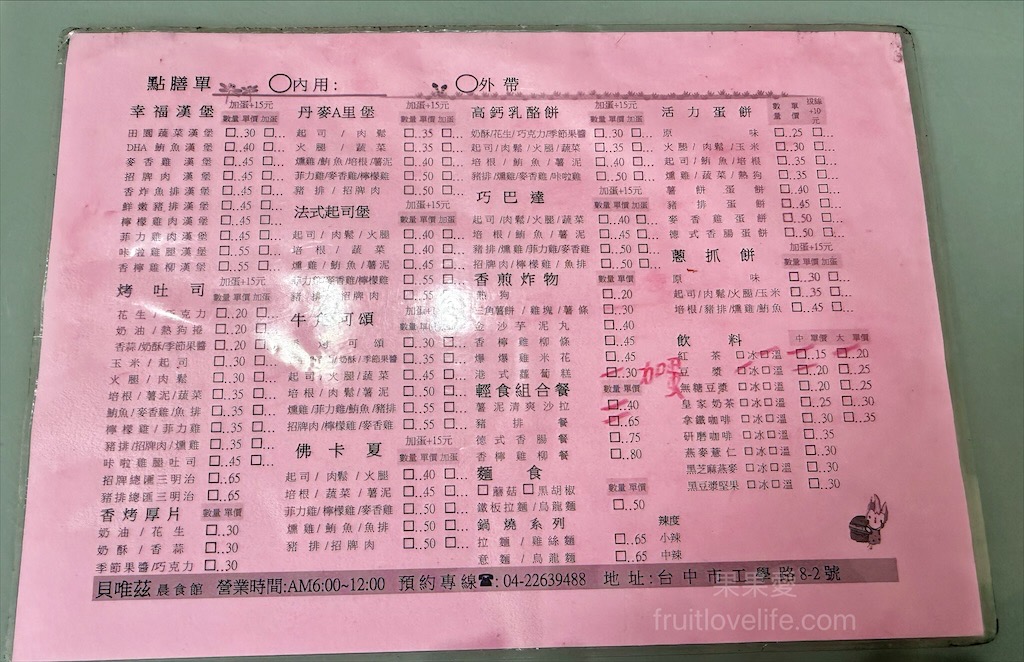 點膳單 ○內用: ○外帶
幸福漢堡 加蛋+15元
數量 單價 加蛋
田園蔬菜漢堡 □..30 □...
DHA 鮪魚漢堡 □..40 □...
麥香雞漢堡 □..45 □...
招牌肉漢堡 □..45 □...
香炸魚排漢堡 □..45 □...
鮮嫩豬排漢堡 □..45 □...
檸檬雞肉漢堡 □..45 □...
菲力雞肉漢堡 □..45 □...
咔啦雞腿漢堡 □..55 □...
香檸雞柳漢堡 □..55 □...
烤吐司 加蛋+15元
數量 單價 加蛋
花生/巧克力 □..20 □...
奶油/熱狗捲 □..20 □...
香蒜/奶酥/季節果醬 □..20 □...
玉米/起司 □..30 □...
火腿/肉鬆 □..30 □...
培根/薯泥/蔬菜 □..35 □...
鮪魚/麥香雞/魚排 □..35 □...
檸檬雞/菲力雞 □..35 □...
豬排/招牌肉/燻雞 □..35 □...
咔啦雞腿吐司 □..45 □...
招牌總匯三明治 □..65
豬排總匯三明治 □..65
香烤厚片 數量 單價
奶油/花生 □..30
奶酥/香蒜 □..30
季節果醬/巧克力 □..30
丹麥A里堡 加蛋+15元
數量 單價 加蛋
起司/肉鬆 □..35 □...
火腿/蔬菜 □..35 □...
燻雞/鮪魚/培根/薯泥 □..40 □...
菲力雞/麥香雞/檸檬雞 □..50 □...
豬排/招牌肉 □..50 □...
法式起司堡 加蛋+15元
數量 單價 加蛋
起司/肉鬆/火腿 □..40 □...
培根/蔬菜 □..40 □...
燻雞/鮪魚/薯泥 □..45 □...
菲力雞/麥香雞/檸檬雞 □..55 □...
豬排/招牌肉 □..55 □...
牛角可頌
數量 單價 加蛋
可頌 □..30 □...
奶酥/季節果醬 □..35 □...
起司/火腿/蔬菜 □..45 □...
培根/肉鬆/薯泥 □..50 □...
燻雞/菲力雞/鮪魚/豬排 □..55 □...
招牌肉/檸檬雞/麥香雞 □..55 □...
佛卡夏 加蛋+15元
數量 單價 加蛋
起司/肉鬆/火腿 □..40 □...
培根/蔬菜/薯泥 □..45 □...
菲力雞/檸檬雞/麥香雞 □..50 □...
燻雞/鮪魚/魚排 □..50 □...
豬排/招牌肉 □..50 □...
高鈣乳酪餅 加蛋+15元
數量 單價 加蛋
奶酥/花生/巧克力/季節果醬 □..30 □...
起司/肉鬆/火腿/蔬菜 □..35 □...
培根/鮪魚/薯泥 □..40 □...
豬排/燻雞/麥香雞/咔啦雞 □..50 □...
巧巴達 加蛋+15元
數量 單價 加蛋
起司/肉鬆/火腿/蔬菜 □..40 □...
培根/鮪魚/薯泥 □..45 □...
豬排/燻雞/菲力雞/麥香雞 □..50 □...
招牌肉/檸檬雞/魚排 □..50 □...
香煎炸物 數量 單價
熱狗 □..20
三角薯餅/雞塊/薯條 □..30
金沙芋泥丸 □..40
香檸雞柳條 □..45
爆爆雞米花 □..45
港式蘿蔔糕 □..30 加蛋
輕食組合餐 數量 單價
薯泥清爽沙拉 □..40
豬排餐 □..65
德式香腸餐 □..75
香檸雞柳餐 □..80
麵食
□蘑菇 □黑胡椒 數量 單價
鐵板拉麵/烏龍麵 □..50
鍋燒系列
拉麵/雞絲麵 □..65
意麵/烏龍麵 □..60
辣度
小辣
中辣
活力蛋餅 數量 單價 起絲+10元
原味 □..25 □...
火腿/肉鬆/玉米 □..30 □...
起司/鮪魚/培根 □..35 □...
燻雞/蔬菜/熱狗 □..35 □...
薯餅蛋餅 □..40 □...
豬排蛋餅 □..45 □...
麥香雞蛋餅 □..50 □...
德式香腸蛋餅 □..50 □...
蔥抓餅 加蛋+15元
數量 單價 加蛋
原味 □..30 □...
起司/肉鬆/火腿/玉米 □..35 □...
培根/豬排/燻雞/鮪魚 □..45 □...
飲料 中 單價 大 單價
紅茶□冰□溫 □..15 □..20
豆漿□冰□溫 □..20 □..25
無糖豆漿□冰□溫 □..20 □..25
皇家奶茶□冰□溫 □..25 □..30
拿鐵咖啡□冰□溫 □..30 □..35
研磨咖啡□冰□溫 □..35
燕麥薏仁□冰□溫 □..30
黑芝麻燕麥□冰□溫 □..30
黑豆漿堅果□冰□溫 □..30
貝唯茲 晨食館 營業時間:AM6:00~12:00 預約專線☎:04-22639488 地址:台中市工學路8-2號
果果愛
fruitlovelife.com